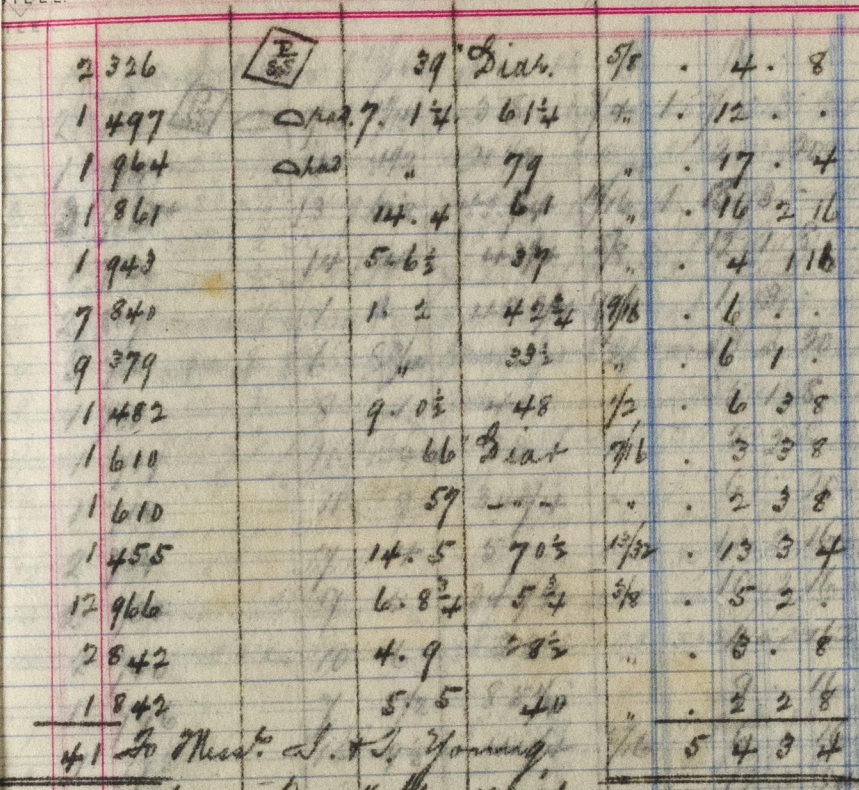 2 326 P S&S 39" Diar. 5/8 . 4 . 8
1 497 7. 1 1/4 61 1/4 " . 12 . .
1 964 " 79 " . 17 . 4
1 861 14. 4 61 " . 16 2 16
1 943 5 6 1/2 37 " . 4 1 16
7 840 11 2 42 3/4 9/16 . 6 . .
9 379 " 33 1/2 " . 6 1 .
1 482 9. 0 1/2 48 1/2 . 6 3 8
1 610 66" Diar 7/16 . 3 3 8
1 610 57 " . 2 3 8
1 455 14. 5 70 1/2 13/32 . 13 3 4
12 966 6. 8 3/4 5 3/4 3/8 . 5 2 .
2 842 4. 9 28 1/2 " . 3 . 8
1 842 5 5 40 " . 2 2 8
41 To Messrs. & J. Young 5 4 3 4